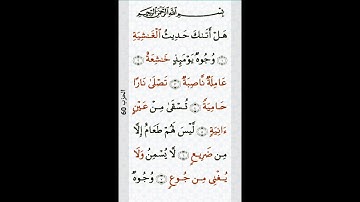 بِسْمِ اللَّهِ الرَّحْمَٰنِ الرَّحِيمِ
هَلْ أَتَىٰكَ حَدِيثُ ٱلْغَٰشِيَةِ
۝١ وُجُوهٌ يَوْمَئِذٍ خَٰشِعَةٌ ۝٢
عَامِلَةٌ نَّاصِبَةٌ ۝٣ تَصْلَىٰ نَارًا
حَامِيَةً ۝٤ تُسْقَىٰ مِنْ عَيْنٍ
ءَانِيَةٍ ۝٥ لَّيْسَ لَهُمْ طَعَامٌ إِلَّا
مِن ضَرِيعٍ ۝٦ لَّا يُسْمِنُ وَلَا
يُغْنِى مِن جُوعٍ ۝٧ وُجُوهٌ
الحزب 60